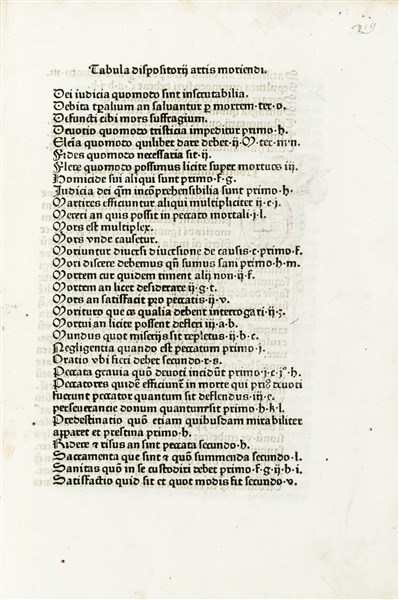 219
Tabula dispositorij artis moriendi.
Dei iudicia quomodo sint inscrutabilia.
Debita tp̄alium an saluantur p̱ mortem·ter·o.
Defuncti cibi mors suffragium.
Deuotio quomodo tristicia impeditur primo·h.
Eleīa quomodo quilibet dare debet·ij·O·ter·m·n.
Fides quomodo necessaria sit·ij.
Flete quomodo possimus licite super mortuos iij.
Homicide sui aliqui sunt primo·f·g.
Iudicia dei qm̄ incōprehensibilia sunt primo·h.
Martires efficiuntur aliqui multipliciter ij·e·j.
Mereri an quis possit in peccato mortali·j·l.
Mors est multiplex.
Mors vnde causetur.
Moriuntur diuersi diuersione de causis·e·primo·f.
Mori discere debemus qn̄ sumus sani primo·h·m.
Mortem cur quidem timent alij non·ij·f.
Mortem an licet desiderare ij·g·t.
Mors an satisfacit pro peccatis·ij·v.
Morituro que ⁊ qualia debent interrogari·ij·
Mortui an licite possent defleri iij·a·b.
Mundus quot miserijs sit repletus·ij·b·c.
Negligentia quando est peccatum primo·j.
Oratio vbi fieri debet secundo·r·s.
Peccata grauia quō deuoti incidūt primo·j·c·j·h.
Peccatores quidē efficiunt̄ in morte qui pri⁹ deuoti
fuerunt peccator quantum sit deflendus·iij·e.
perseuerancie donum quantum sit primo·h·k·l.
Predestinatio quō etiam quibusdam mirabiliter
apparet et prestina primo·h.
Ridere ⁊ risus an sunt peccata secundo·h.
Sacramenta que sunt ⁊ quō summenda secundo·l.
Sanitas quō in se custodiri debet primo·f·g·ij·h·i.
Satisfactio quid sit et quot modis fit secundo·v.